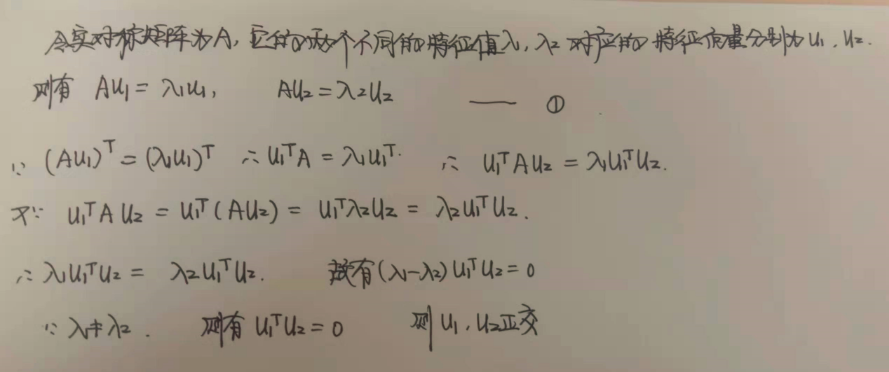 令实对称矩阵为A, 它的两个不同的特征值λ₁, λ₂ 对应的特征向量分别为 u₁, u₂.
则有 Au₁ = λ₁u₁, Au₂ = λ₂u₂ —— ①
∵ (Au₁)ᵀ = (λ₁u₁)ᵀ ∴ u₁ᵀA = λ₁u₁ᵀ. ∴ u₁ᵀAu₂ = λ₁u₁ᵀu₂.
又∵ u₁ᵀAu₂ = u₁ᵀ(Au₂) = u₁ᵀλ₂u₂ = λ₂u₁ᵀu₂.
∴ λ₁u₁ᵀu₂ = λ₂u₁ᵀu₂. 故有(λ₁-λ₂)u₁ᵀu₂ = 0
∵ λ₁≠λ₂. 则有 u₁ᵀu₂ = 0 则 u₁, u₂正交